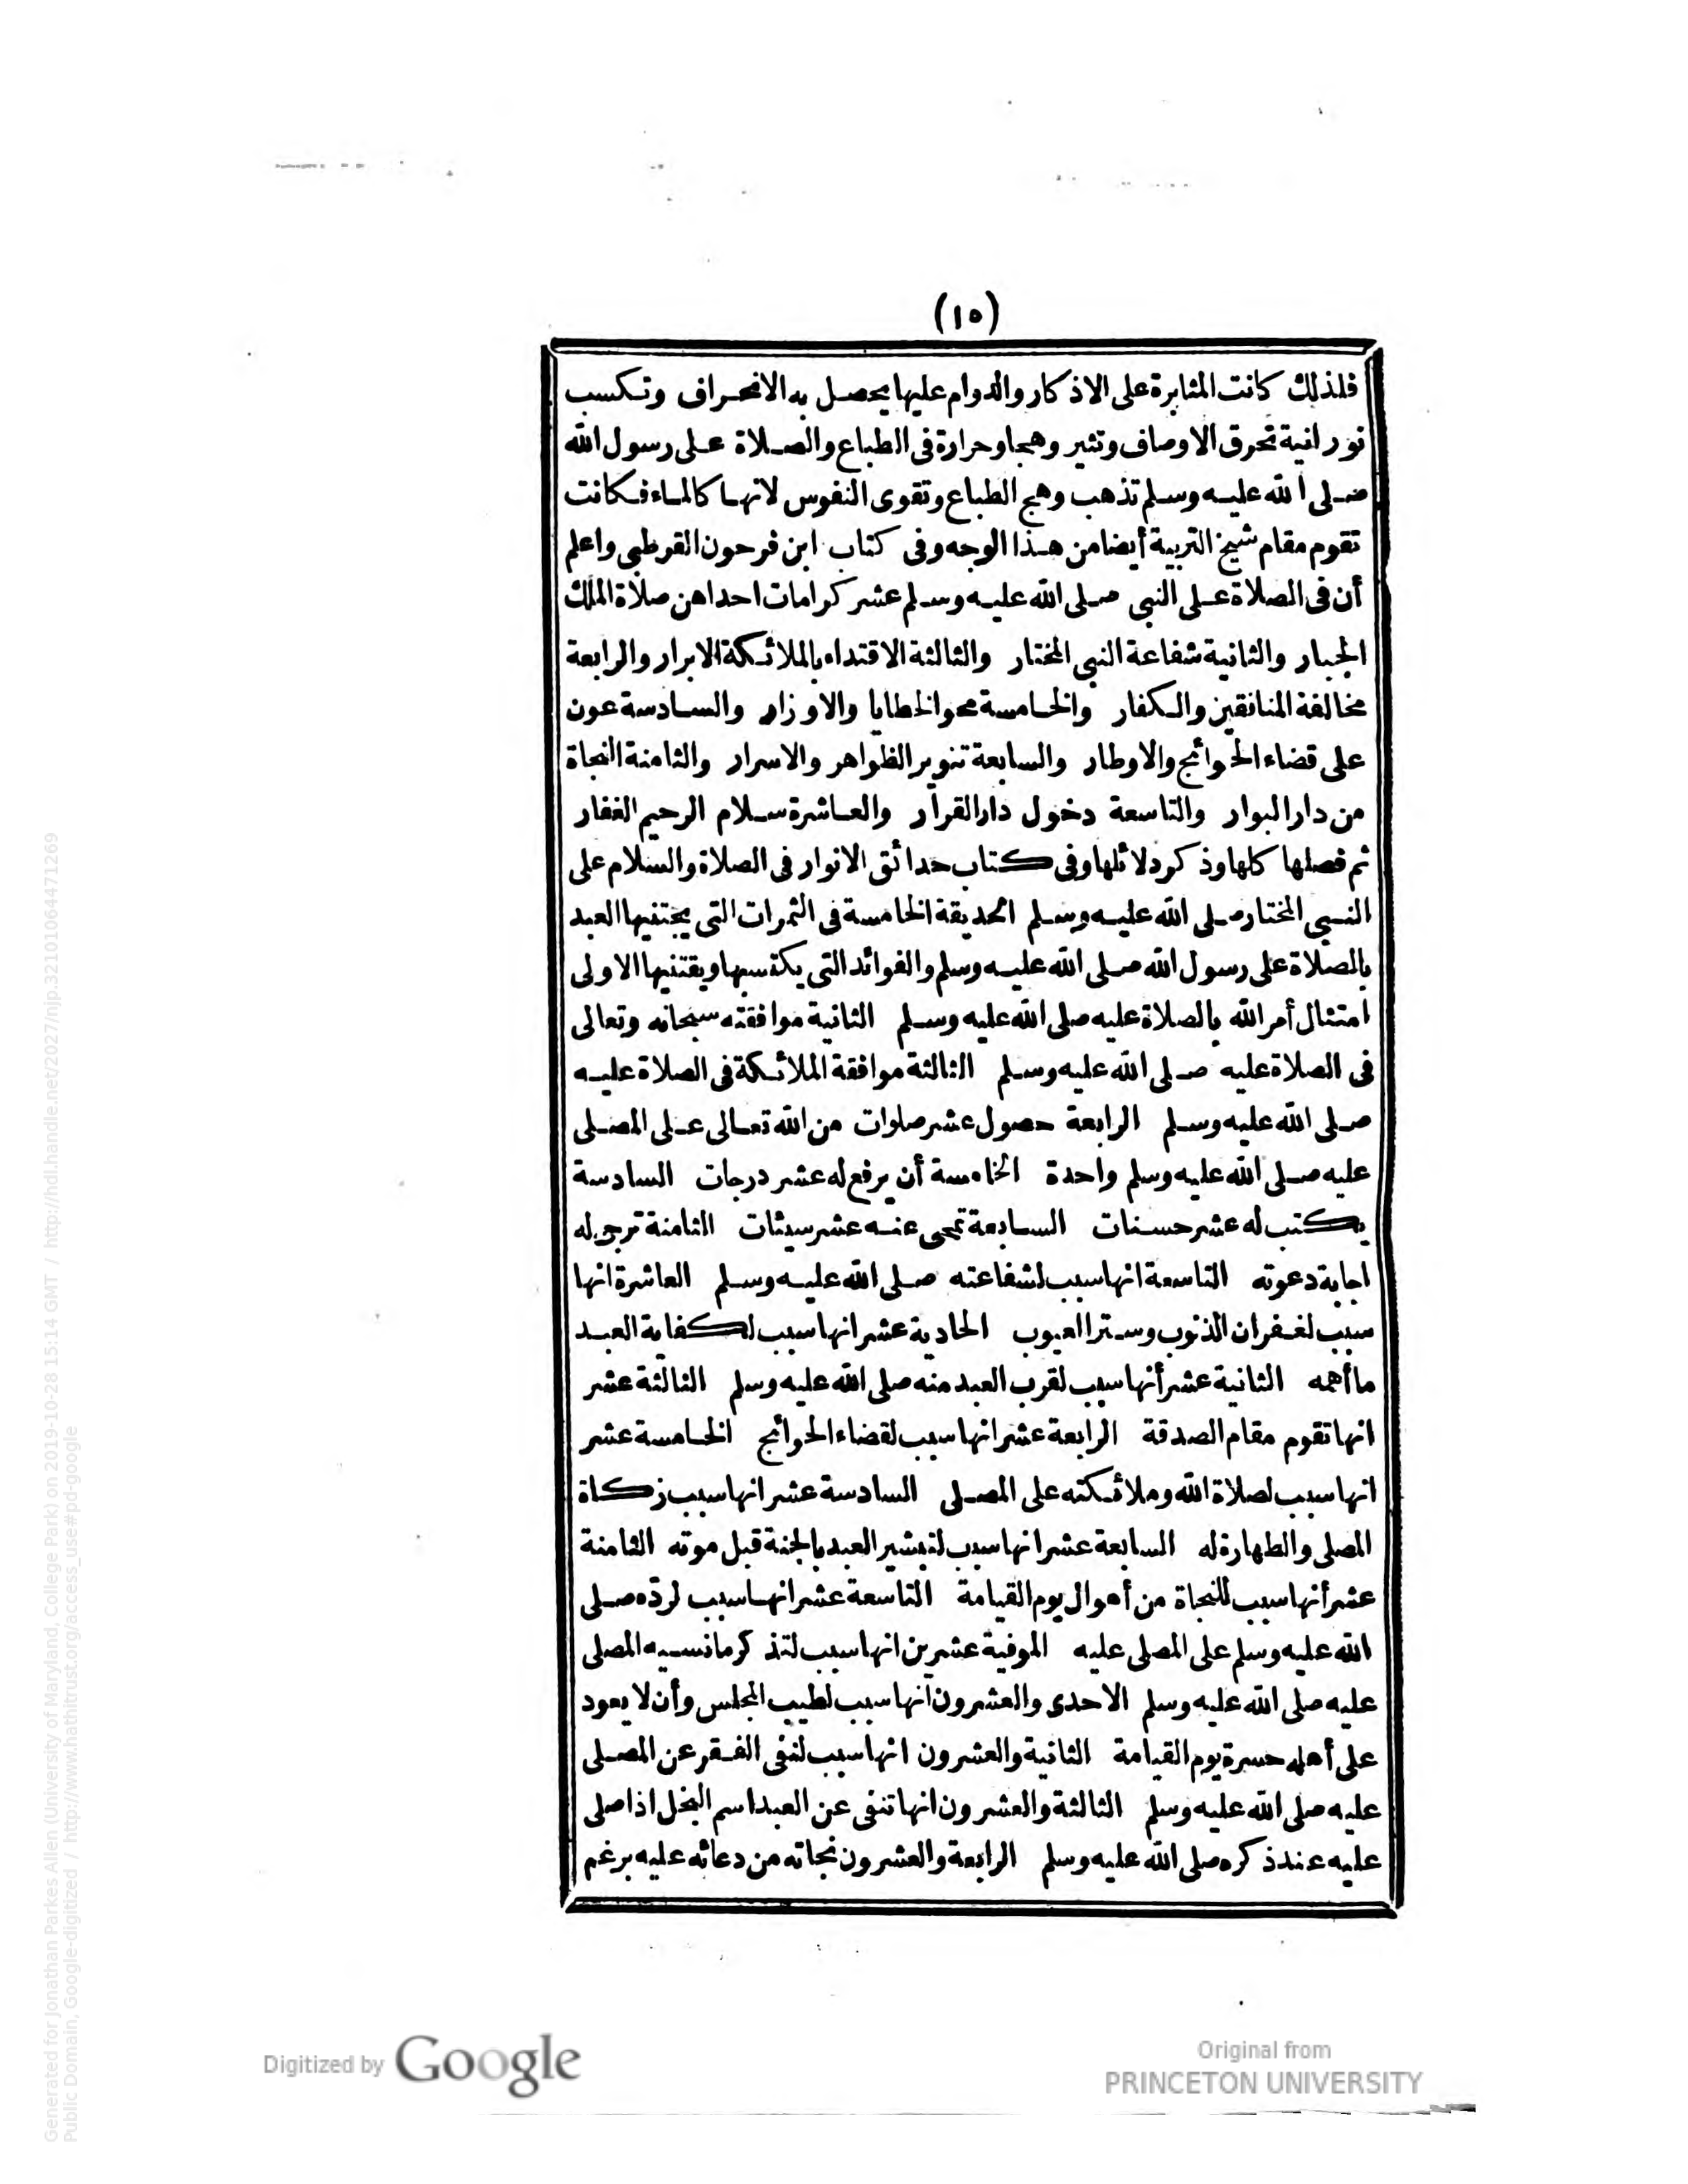 (١٥)
فلذلك كانت المثابرة على الاذكار والدوام عليها يحصل به الانحراف وتكسب
نورانية تحرق الاوصاف وتثير وهجا وحرارة فى الطباع والصلاة على رسول الله
صلى الله عليه وسلم تذهب وهج الطباع وتقوى النفوس لانها كالماء فكانت
تقوم مقام شيخ التربية أيضا من هذا الوجه وفى كتاب ابن فرحون القرطبى واعلم
أن فى الصلاة على النبى صلى الله عليه وسلم عشر كرامات احداهن صلاة الملك
الجبار والثانية شفاعة النبى المختار والثالثة الاقتداء بالملائكة الابرار والرابعة
مخالفة المنافقين والكفار والخامسة محو الخطايا والاوزار والسادسة عون
على قضاء الحوائج والاوطار والسابعة تنوير الظواهر والاسرار والثامنة النجاة
من دار البوار والتاسعة دخول دار القرار والعاشرة سلام الرحيم الغفار
ثم فصلها كلها وذكر دلائلها وفى كتاب حدائق الانوار فى الصلاة والسلام على
النبى المختار صلى الله عليه وسلم الحديقة الخامسة فى الثمرات التى يجتنيها العبد
بالصلاة على رسول الله صلى الله عليه وسلم والفوائد التى يكتسبها ويقتنيها الاولى
امتثال أمر الله بالصلاة عليه صلى الله عليه وسلم الثانية موافقته سبحانه وتعالى
فى الصلاة عليه صلى الله عليه وسلم الثالثة موافقة الملائكة فى الصلاة عليه
صلى الله عليه وسلم الرابعة حصول عشر صلوات من الله تعالى على المصلى
عليه صلى الله عليه وسلم واحدة الخامسة أن يرفع له عشر درجات السادسة
يكتب له عشر حسنات السابعة تمحى عنه عشر سيئات الثامنة ترجى له
اجابة دعوته التاسعة انها سبب لشفاعته صلى الله عليه وسلم العاشرة انها
سبب لغفران الذنوب وستر العيوب الحادية عشر انها سبب لكفاية العبد
ما أهمه الثانية عشر أنها سبب لقرب العبد منه صلى الله عليه وسلم الثالثة عشر
انها تقوم مقام الصدقة الرابعة عشر انها سبب لقضاء الحوائج الخامسة عشر
انها سبب لصلاة الله وملائكته على المصلى السادسة عشر انها سبب زكاة
المصلى والطهارة له السابعة عشر انها سبب لتبشير العبد بالجنة قبل موته الثامنة
عشر أنها سبب للنجاة من أهوال يوم القيامة التاسعة عشر انها سبب لردّه صلى
الله عليه وسلم على المصلى عليه الموفية عشرين انها سبب لتذكر ما نسيه المصلى
عليه صلى الله عليه وسلم الاحدى والعشرون أنها سبب لطيب المجلس وأن لا يعود
على أهله حسرة يوم القيامة الثانية والعشرون انها سبب لنفى الفقر عن المصلى
عليه صلى الله عليه وسلم الثالثة والعشرون انها تنفى عن العبد اسم البخل اذا صلى
عليه عند ذكره صلى الله عليه وسلم الرابعة والعشرون نجاته من دعائه عليه برغم
Digitized by Google
Original from
PRINCETON UNIVERSITY
Generated for Jonathan Parkes Allen (University of Maryland, College Park) on 2019-10-28 15:14 GMT / http://hdl.handle.net/2027/njp.32101064471269
Public Domain, Google-digitized / http://www.hathitrust.org/access_use#pd-google